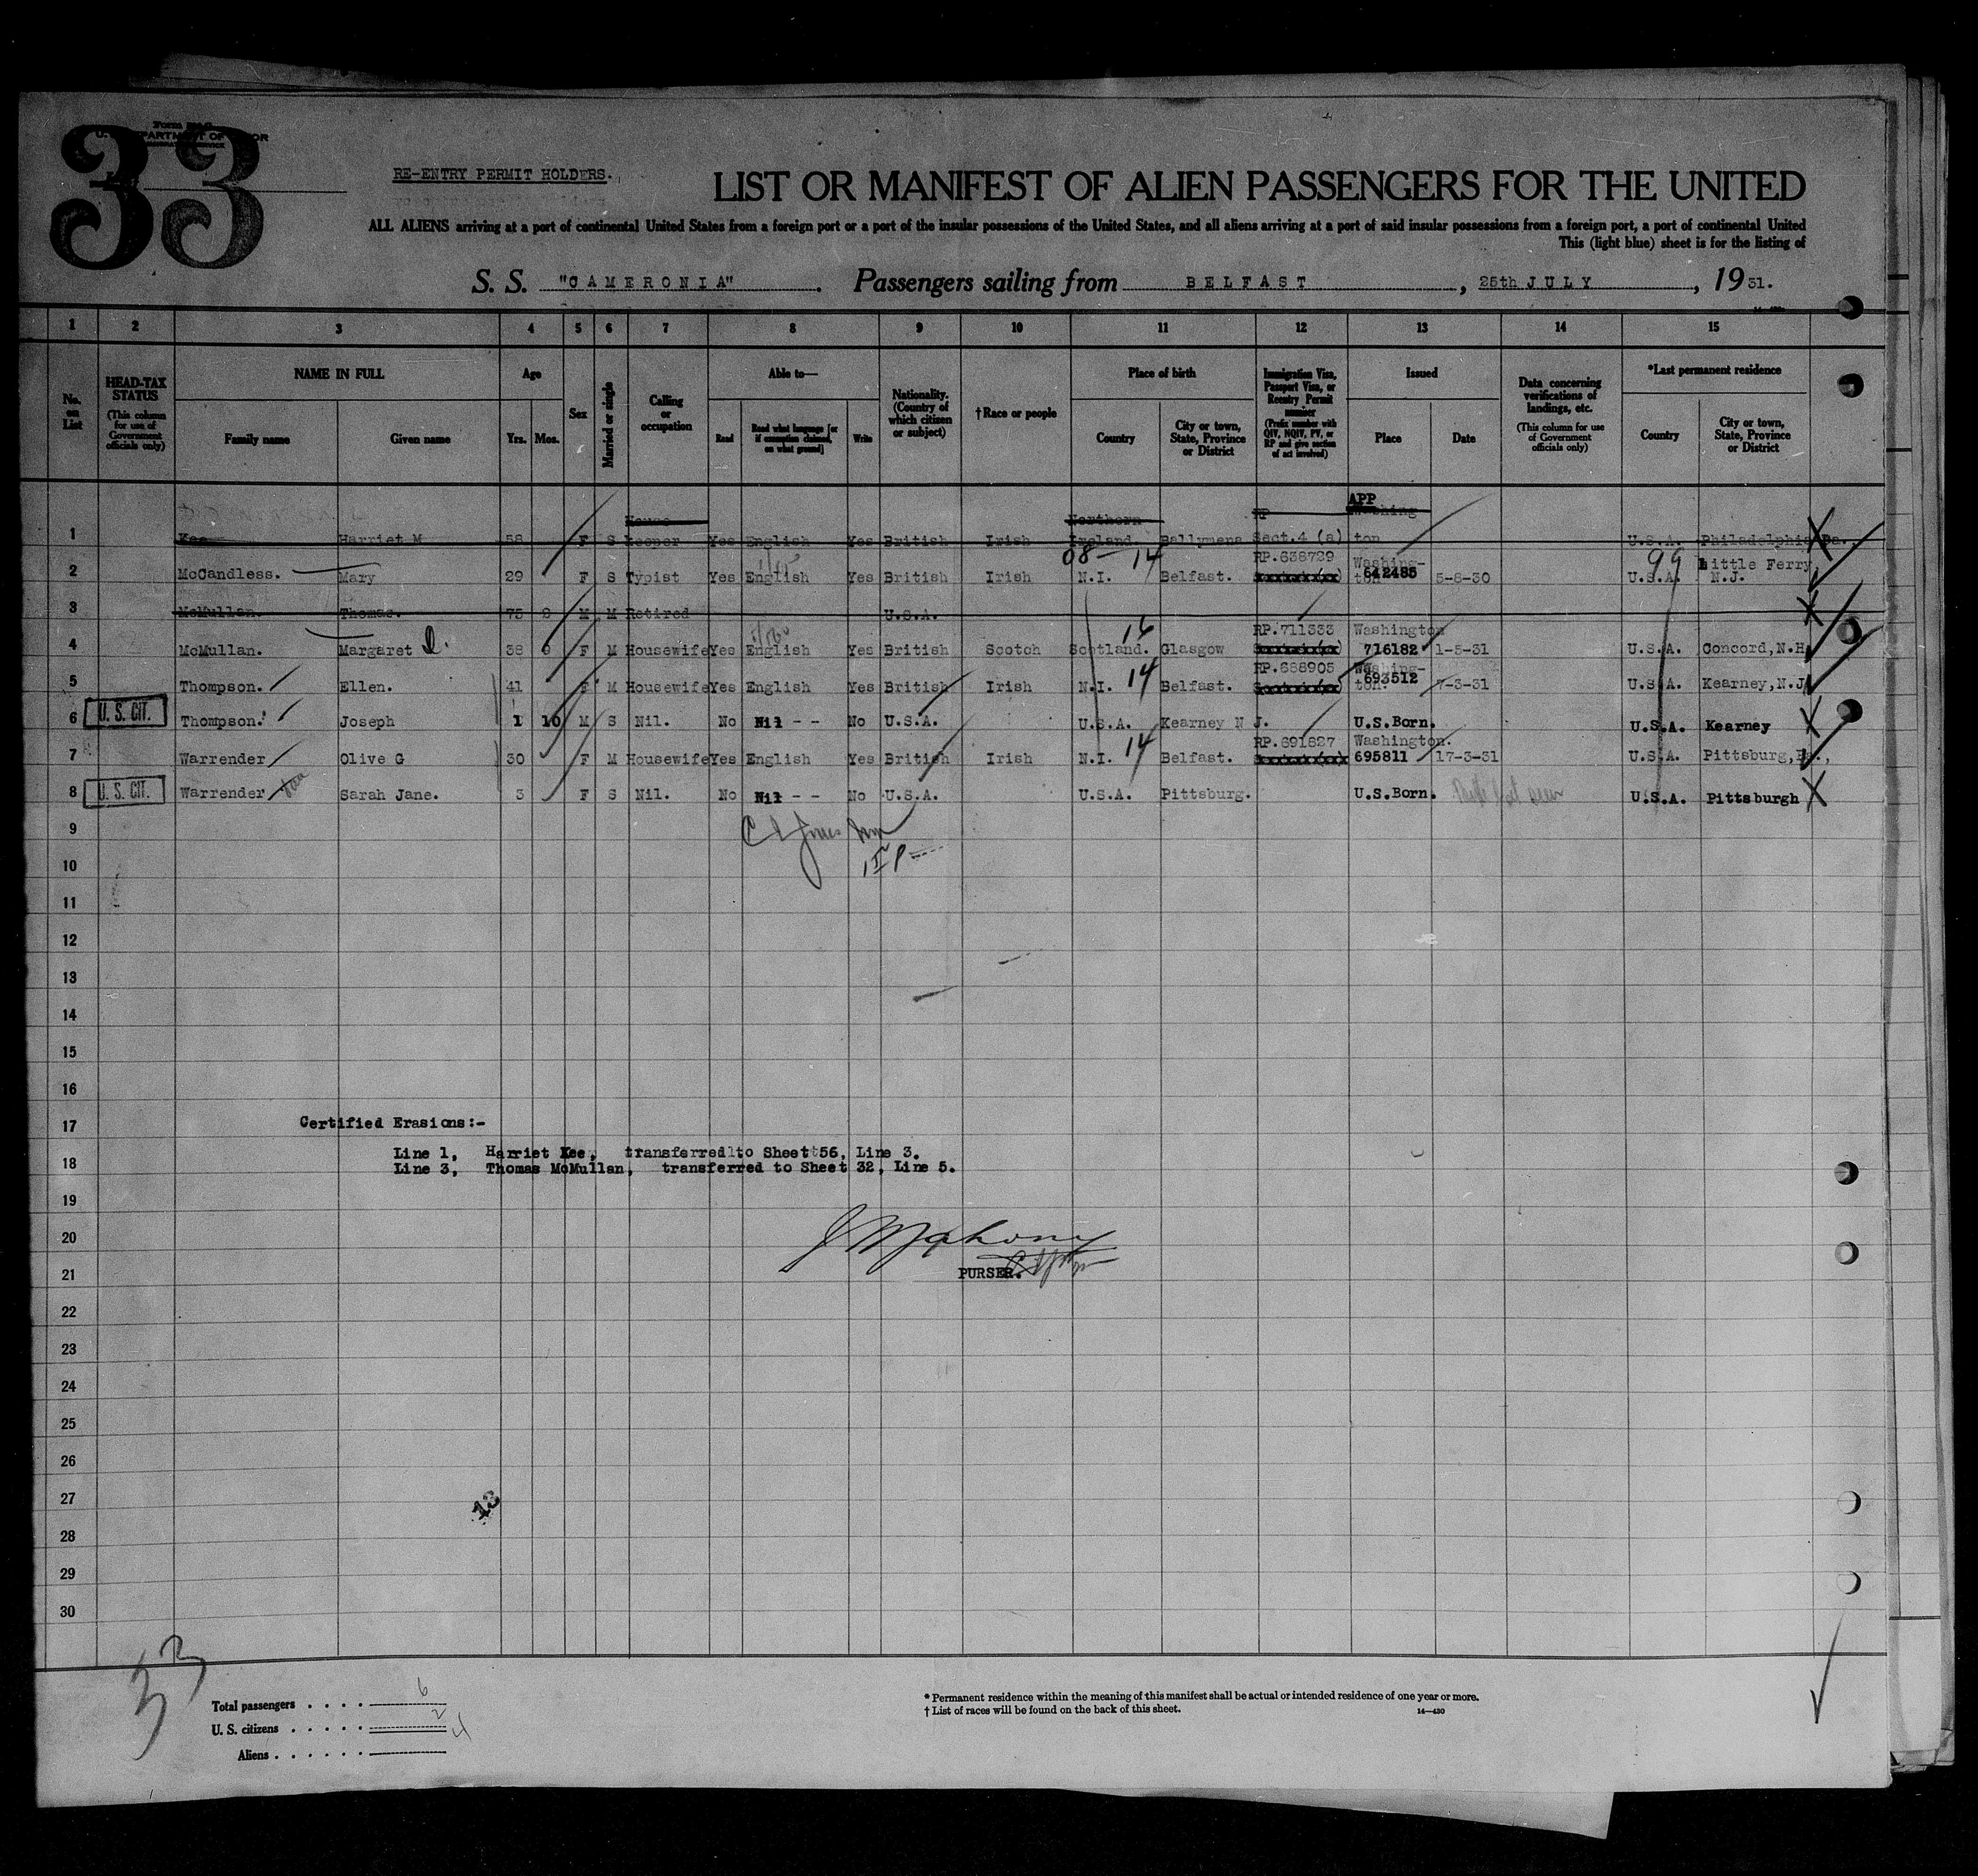 33
RE-ENTRY PERMIT HOLDERS.
LIST OR MANIFEST OF ALIEN PASSENGERS FOR THE UNITED
ALL ALIENS arriving at a port of continental United States from a foreign port or a port of the insular possessions of the United States, and all aliens arriving at a port of said insular possessions from a foreign port, a port of continental United
This (light blue) sheet is for the listing of
S. S. "CAMERONIA". Passengers sailing from BELFAST, 25th JULY, 1931.
1 2 3 4 5 6 7 8 9 10 11 12 13 14 15
No. on List
HEAD-TAX STATUS (This column for use of Government officials only)
NAME IN FULL
Family name Given name
Age
Yrs. Mos.
Sex
Married or single
Calling or occupation
Able to—
Read Read what language [or if exemption claimed, on what ground] Write
Nationality. (Country of which citizen or subject)
†Race or people
Place of birth
Country City or town, State, Province or District
Immigration Visa, Passport Visa, or Reentry Permit number (Prefix number with QIV, NQIV, PV, or RP and give section of act involved)
Issued
Place Date
Data concerning verifications of landings, etc. (This column for use of Government officials only)
*Last permanent residence
Country City or town, State, Province or District
1 Kee Harriet M 58 F S House keeper Yes English Yes British Irish Northern Ireland. Ballymena RP Sect.4 (a) APP Washington U.S.A. Philadelphia Pa.
08— 14 99
2 McCandless. Mary 29 F S Typist Yes English Yes British Irish N.I. Belfast. RP.638729 Washington 642485 5-8-30 U.S.A. Little Ferry, N.J.
3 McMullan. Thomas. 75 M M Retired U.S.A.
4 McMullan. Margaret D. 38 F M Housewife Yes English Yes British Scotch Scotland. 16 Glasgow RP.711333 Washington 716182 1-5-31 U.S.A. Concord,N.H
5 Thompson. Ellen. 41 F M Housewife Yes English Yes British Irish N.I. 14 Belfast. RP.688905 Washington. 693512 7-3-31 U.S.A. Kearney,N.J
6 U. S. CIT. Thompson. Joseph 1 10 M S Nil. No Nil - - No U.S.A. U.S.A. Kearney N J. U.S.Born. U.S.A. Kearney
7 Warrender Olive G 30 F M Housewife Yes English Yes British Irish N.I. 14 Belfast. RP.691827 Washington. 695811 17-3-31 U.S.A. Pittsburg,Pa.,
8 U. S. CIT. Warrender Sarah Jane. 3 F S Nil. No Nil - - No U.S.A. U.S.A. Pittsburg. U.S.Born. U.S.A. Pittsburgh
9
10
11
12
13
14
15
16
17 Certified Erasions:-
Line 1, Harriet Kee, transferred to Sheet 56, Line 3.
18
Line 3, Thomas McMullan, transferred to Sheet 32, Line 5.
19
20 J Mahony
21 PURSER.
22
23
24
25
26
27
28
29
30
33
Total passengers . . . . 6
U. S. citizens . . . . . 2
Aliens . . . . . . 4
* Permanent residence within the meaning of this manifest shall be actual or intended residence of one year or more.
† List of races will be found on the back of this sheet. 14—430